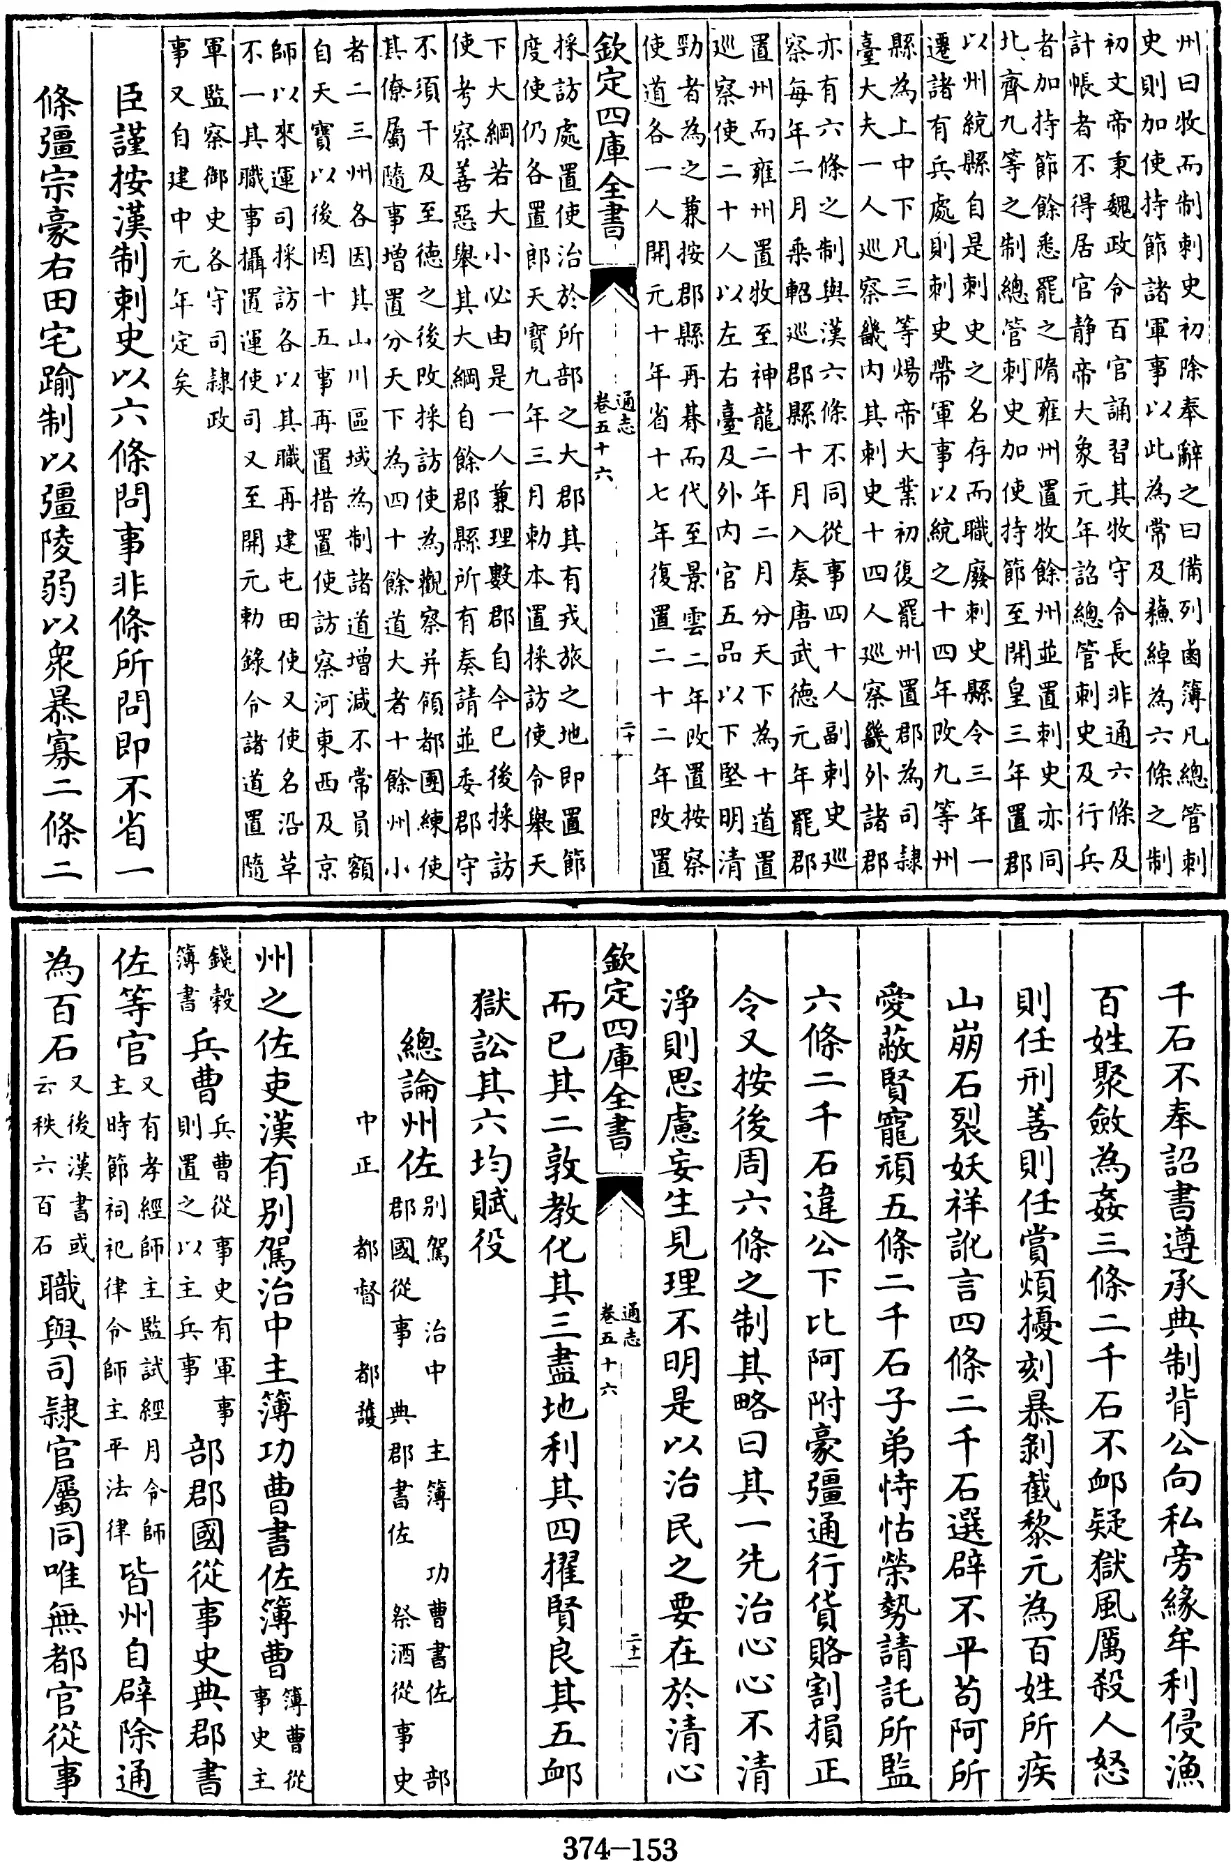 州曰牧而制刺史初除奉辭之曰備列鹵簿凡總管刺
史則加使持節諸軍事以此為常及蘓綽為六條之制
初文帝秉魏政令百官誦習其牧守令長非通六條及
計帳者不得居官静帝大象元年詔總管刺史及行兵
者加持節餘悉罷之隋雍州置牧餘州並置刺史亦同
北齊九等之制總管刺史加使持節至開皇三年置郡
以州統縣自是刺史之名存而職廢刺史縣令三年一
遷諸有兵處則刺史帶軍事以統之十四年改九等州
縣為上中下凡三等煬帝大業初復罷州置郡為司隸
臺大夫一人巡察畿內其刺史十四人巡察畿外諸郡
亦有六條之制與漢六條不同從事四十人副刺史巡
察每年二月乘軺巡郡縣十月入奏唐武德元年罷郡
置州而雍州置牧至神龍二年二月分天下為十道置
巡察使二十人以左右臺及外內官五品以下堅明清
勁者為之兼按郡縣再朞而代至景雲二年改置按察
使道各一人開元十年省十七年復置二十二年改置
欽定四庫全書 通志卷五十六 二十
採訪處置使治於所部之大郡其有戎旅之地即置節
度使仍各置郎天寶九年三月勅本置採訪使令舉天
下大綱若大小必由是一人兼理數郡自今已後採訪
使考察善惡舉其大綱自餘郡縣所有奏請並委郡守
不須干及至德之後改採訪使為觀察并領都團練使
其僚屬隨事增置分天下為四十餘道大者十餘州小
者二三州各因其山川區域為制諸道增減不常員額
自天寶以後因十五事再置措置使訪察河東西及京
師以來運司採訪各以其職再建屯田使又使名沿草
不一其職事攝置運使司又至開元勅錄令諸道置隨
軍監察御史各守司隸政
事又自建中元年定矣
臣謹按漢制刺史以六條問事非條所問即不省一
條彊宗豪右田宅踰制以彊陵弱以衆暴寡二條二
千石不奉詔書遵承典制背公向私旁緣牟利侵漁
百姓聚斂為姦三條二千石不衈疑獄風厲殺人怒
則任刑善則任賞煩擾刻暴剝截黎元為百姓所疾
山崩石裂妖祥訛言四條二千石選辟不平苟阿所
愛蔽賢寵頑五條二千石子弟恃怙榮勢請託所監
六條二千石違公下比阿附豪彊通行貨賂割損正
令又按後周六條之制其略曰其一先治心心不清
淨則思慮妄生見理不明是以治民之要在於清心
欽定四庫全書 通志卷五十六 二十一
而已其二敦教化其三盡地利其四擢賢良其五衈
獄訟其六均賦役
總論州佐 別駕 治中 主簿 功曹書佐 部
郡國從事 典郡書佐 祭酒從事史
中正 都督 都護
州之佐吏漢有別駕治中主簿功曹書佐簿曹簿曹從事史主
錢穀簿書兵曹兵曹從事史有軍事則置之以主兵事部郡國從事史典郡書
佐等官又有孝經師主監試經月令師主時節祠祀律令師主平法律皆州自辟除通
為百石又後漢書或云秩六百石職與司隸官屬同唯無都官從事
374-153